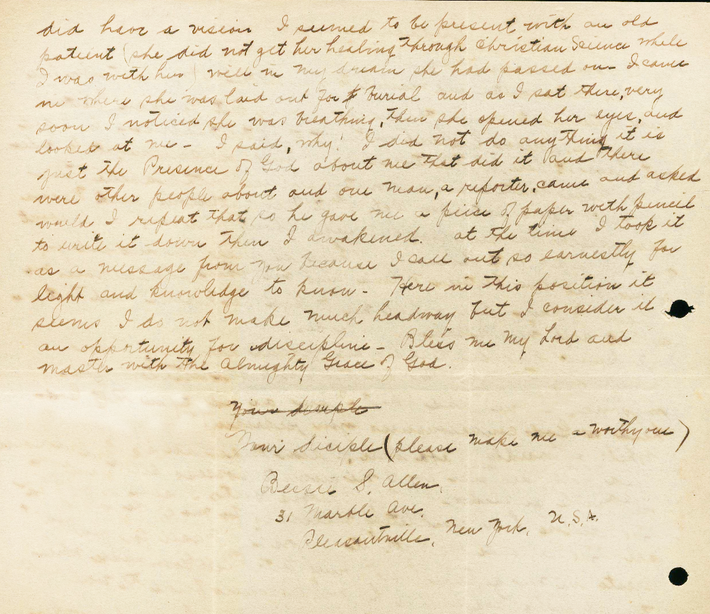 did have a vision I seemed to be present with an old
patient (she did not get her healing through Christian Science while
I was with her) well in my dream she had passed on - I came
in where she was laid out for burial and as I sat there, very
soon I noticed she was breathing, then she opened her eyes, and
looked at me - I said, why! I did not do anything it is
just the Presence of God about me that did it and there
were other people about and one man, a reporter, came and asked
would I repeat that so he gave me a piece of paper with pencil
to write it down then I awakened. at the time I took it
as a message from you because I call out so earnestly for
light and knowledge to know - Here in this position it
seems I do not make much headway but I consider it
an opportunity for discipline - Bless me my Lord and
master with the Almighty Grace of God.
Your
Your Diciple (please make me a worthy one)
Bessie S. Allen.
31 Marble Ave.
Pleasantville, New York, U.S.A.